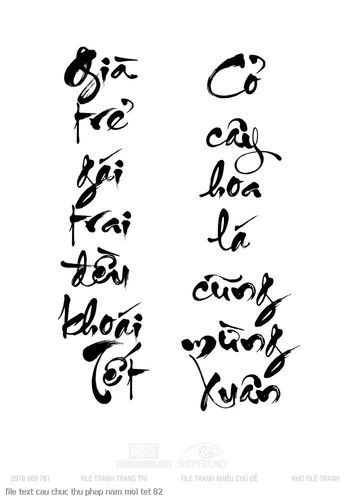 già
trẻ
gái
trai
đều
khoái
Tết
Cỏ
cây
hoa
lá
cũng
mừng
Xuân
SHOPFILE.NET
0978 969 761 FILE TRANH TRANG TRÍ FILE TRANH NHIỀU CHỦ ĐỀ KHO FILE TRANH
file text cau chuc thu phap nam moi tet 82